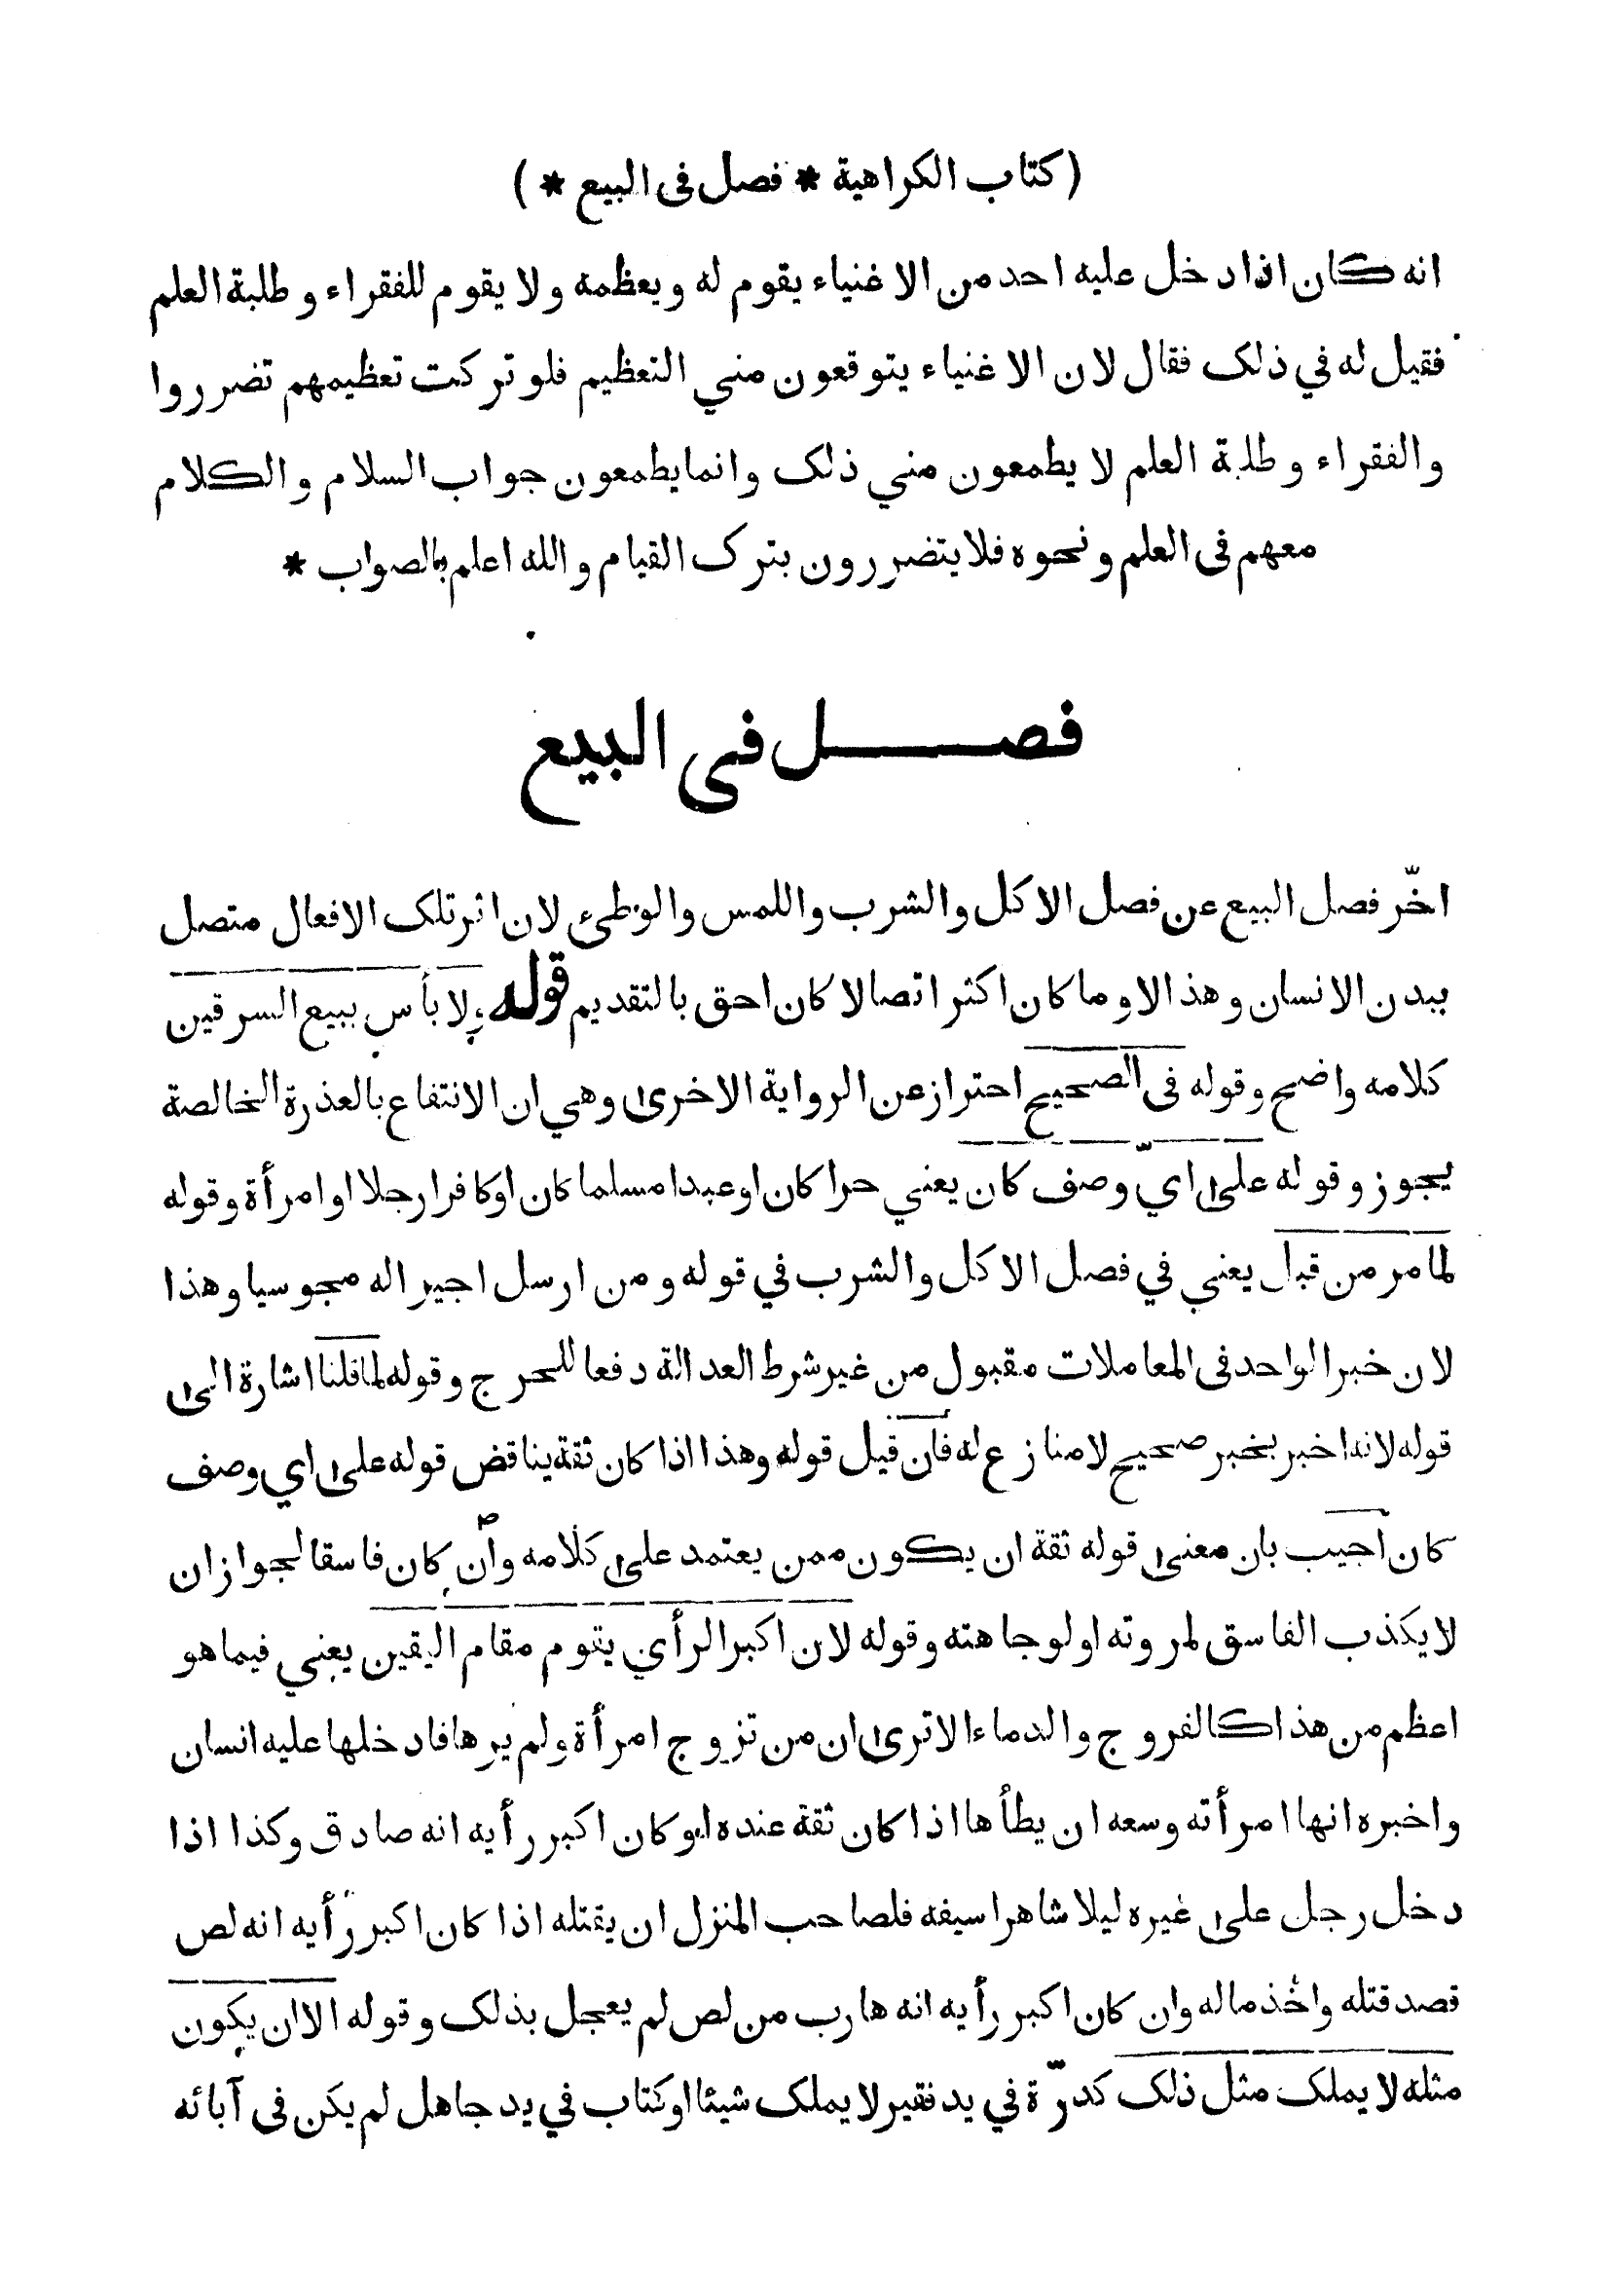 ( كتاب الكراهية * فصل فى البيع * )
انه كان اذا دخل عليه احد من الاغنياء يقوم له ويعظمه ولا يقوم للفقراء وطلبة العلم
فقيل له في ذلك فقال لان الاغنياء يتوقعون مني التعظيم فلو تركت تعظيمهم تضرروا
والفقراء وطلبة العلم لا يطمعون مني ذلك وانما يطمعون جواب السلام والكلام
معهم فى العلم ونحوه فلا يتضررون بترك القيام والله اعلم بالصواب *
فصل فى البيع
اخّر فصل البيع عن فصل الاكل والشرب واللمس والوطئ لان اثر تلك الافعال متصل
ببدن الانسان وهذا لا وما كان اكثر اتصالا كان احق بالتقديم قوله ولا بأس ببيع السرقين
كلامه واضح وقوله فى الصحيح احتراز عن الرواية الاخرى وهي ان الانتفاع بالعذرة الخالصة
يجوز وقوله على ايّ وصف كان يعني حرا كان او عبدا مسلما كان او كافرا رجلا او امرأة وقوله
لما مر من قبل يعني في فصل الاكل والشرب في قوله ومن ارسل اجيرا له مجوسيا وهذا
لان خبر الواحد فى المعاملات مقبول من غير شرط العدالة دفعا للحرج وقوله لما قلنا اشارة الى
قوله لانه اخبر بخبر صحيح لا منازع له فان قيل قوله وهذا اذا كان ثقة يناقض قوله على اي وصف
كان اجيب بان معنى قوله ثقة ان يكون ممن يعتمد على كلامه وان كان فاسقا لجواز ان
لا يكذب الفاسق لمروته او لوجاهته وقوله لان اكبر الرأي يقوم مقام اليقين يعني فيما هو
اعظم من هذا كالفروج والدماء الا ترى ان من تزوج امرأة ولم يرها فادخلها عليه انسان
واخبره انها امرأته وسعه ان يطأها اذا كان ثقة عنده او كان اكبر رأيه انه صادق وكذا اذا
دخل رجل على غيره ليلا شاهرا سيفه فلصاحب المنزل ان يقتله اذا كان اكبر رأيه انه لص
قصد قتله واخذ ماله وان كان اكبر رأيه انه هارب من لص لم يعجل بذلك وقوله الا ان يكون
مثله لا يملك مثل ذلك كدرّة في يد فقير لا يملك شيئا او كتاب في يد جاهل لم يكن فى آبائه